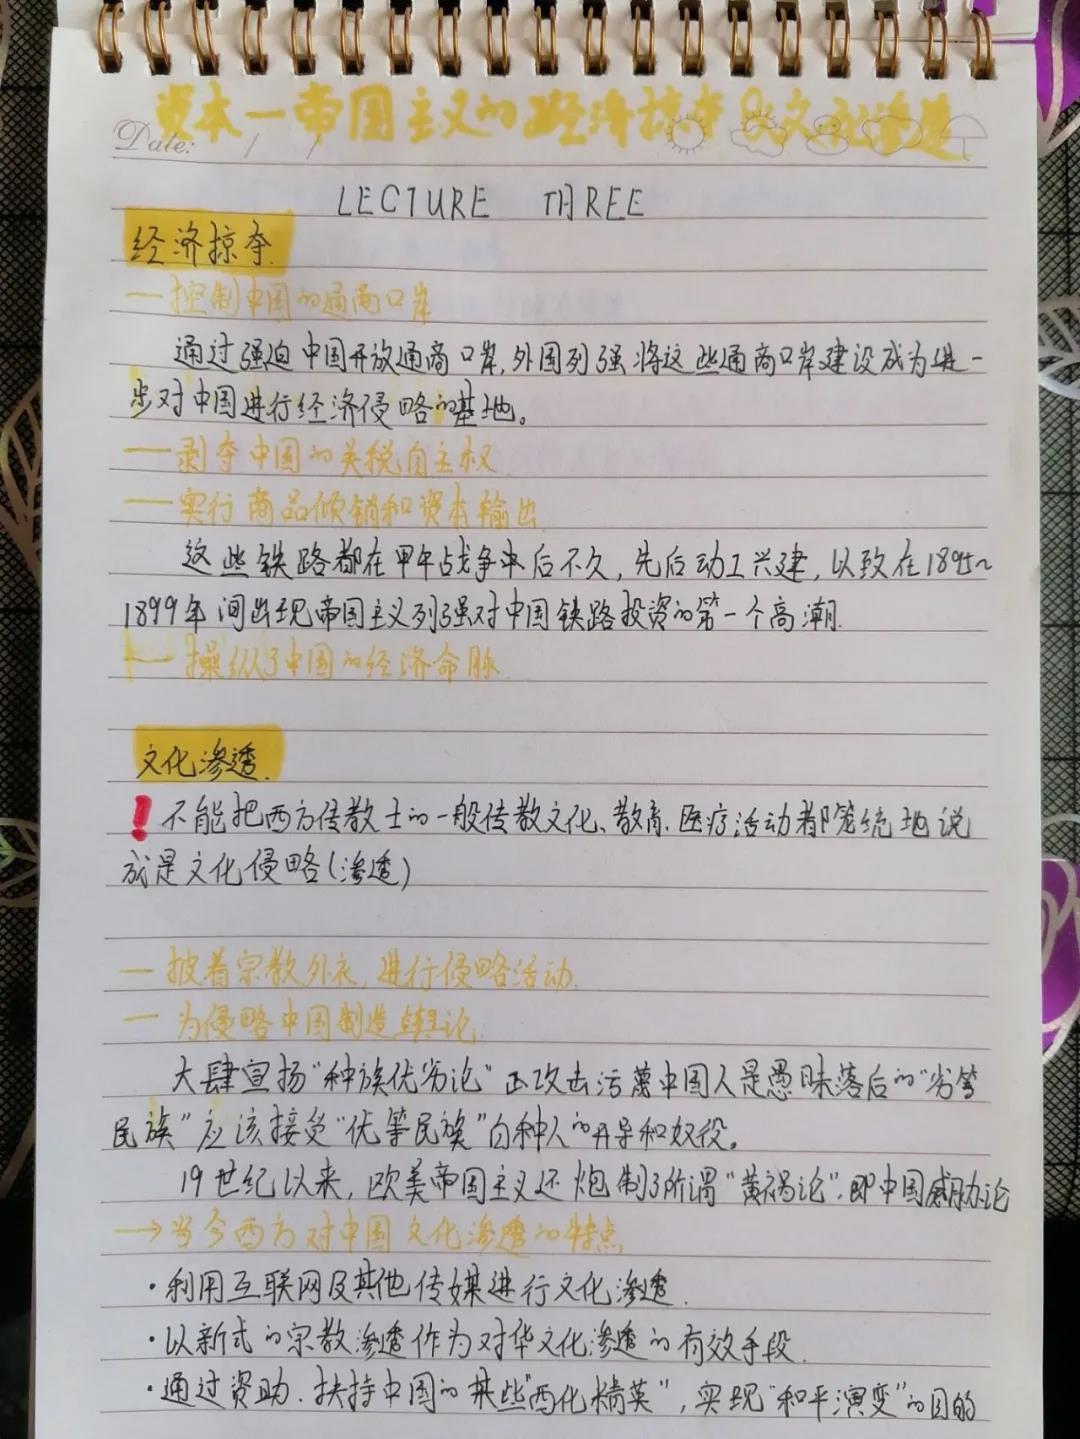 资本—帝国主义的经济掠夺以文化渗透
Date: / /
LECTURE THREE
经济掠夺.
—控制中国的通商口岸
通过强迫中国开放通商口岸,外国列强将这些通商口岸建设成为进一
步对中国进行经济侵略的基地。
—剥夺中国的关税自主权
—实行商品倾销和资本输出.
这些铁路都在甲午战争中后不久,先后动工兴建,以致在1895~
1899年间出现帝国主义列强对中国铁路投资的第一个高潮.
—操纵了中国的经济命脉.
文化渗透.
!不能把西方传教士的一般传教文化、教育.医疗活动都笼统地说
成是文化侵略(渗透)
—披着宗教外衣,进行侵略活动.
—为侵略中国制造舆论.
大肆宣扬“种族优劣论”攻击污蔑中国人是愚昧落后的“劣等
民族”应该接受“优等民族”白种人的开导和奴役。
19世纪以来,欧美帝国主义还炮制了所谓“黄祸论”.即中国威胁论
→当今西方对中国文化渗透的特点
·利用互联网及其他传媒进行文化渗透.
·以新式的宗教渗透作为对华文化渗透的有效手段.
·通过资助.扶持中国的某些“西化精英”,实现“和平演变”的目的